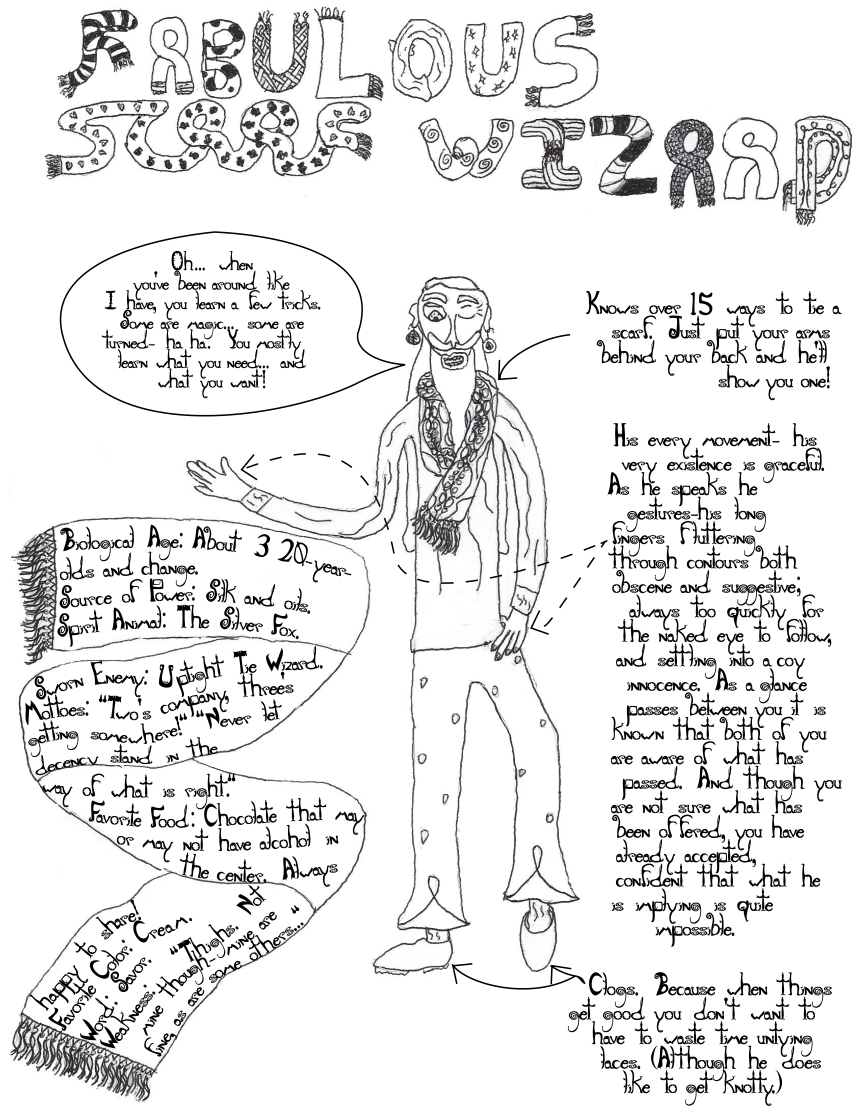 FABULOUS
SCARF WIZARD
Oh... when
you've been around like
I have, you learn a few tricks.
Some are magic... some are
turned- ha ha. You mostly
learn what you need... and
what you want!
Knows over 15 ways to tie a
scarf. Just put your arms
behind your back and he'll
show you one!
His every movement- his
very existence is graceful.
As he speaks he
gestures-his long
fingers fluttering
through contours both
obscene and suggestive;
always too quickly for
the naked eye to follow,
and settling into a coy
innocence. As a glance
passes between you it is
known that both of you
are aware of what has
passed. And though you
are not sure what has
been offered, you have
already accepted,
confident that what he
is implying is quite
impossible.
Biological Age: About 3 20-year-
olds and change.
Source of Power: Silk and oils.
Spirit Animal: The Silver Fox.
Sworn Enemy: Uptight Tie Wizard.
Mottoes: "Two's company, three's
getting somewhere!" "Never let
decency stand in the
way of what is right."
Favorite Food: Chocolate that may
or may not have alcohol in
the center. Always
happy to share!
Favorite Color: Cream.
Word: Savor.
Weakness: "Thighs. Not
mine though- mine are
fine, as are some others..."
Clogs. Because when things
get good you don't want to
have to waste time untying
laces. (Although he does
like to get knotty.)